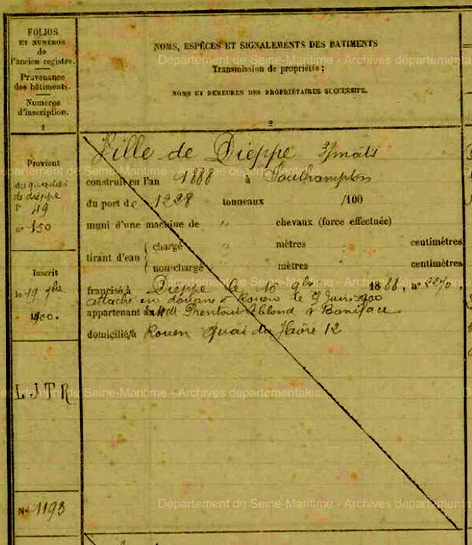 FOLIOS
ET NUMÉROS
de
l'ancien registre.
Provenance
des bâtiments.
Numéros
d'inscription.
1
NOMS, ESPÈCES ET SIGNALEMENTS DES BATIMENTS
Transmission de propriétés;
NOMS ET DEMEURES DES PROPRIÉTAIRES SUCCESSIFS.
2
Provient
du quartier
de dieppe
f° 49
n° 150
Ville de Dieppe 3/mâts
construit en l'an 1888 à Southampton
du port de 1228 tonneaux /100
muni d'une machine de " chevaux (force effectuée)
tirant d'eau
chargé " mètres centimètres
non chargé " mètres centimètres
Inscrit
le 19 9bre
1900.
francisé à Dieppe le 16 9bre 1888, n° 2270.
attaché en douane à Rouen le 9 Juin 1900
appartenant à MM Prentout Leblond & Boniface
domiciliés à Rouen quai du Havre 12
LJTR
N° 1193
Département de Seine-Maritime - Archives départementales
Département de Seine-Maritime - Archives départementales
de Seine-Maritime - Archives départementales
Département de Seine-Maritime - Archives départementales